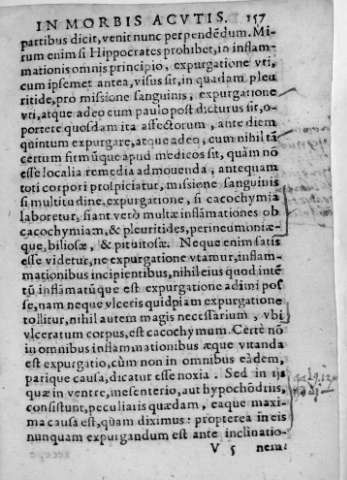 IN MORBIS ACVTIS. 157
partibus dicit, venit nunc perpendẽdum. Mi-
rum enim si Hippocrates prohibet, in inflam-
mationis omnis principio, expurgatione vti,
cum ipsemet antea, visus sit, in quadam pleu
ritide, pro missione sanguinis, expurgatione
vti, atque adeo cum paulo post dicturus sit, o-
portere quosdam ita affectorum, ante diem
quintum expurgare, atque adeo, cum nihil tã
certum firmũque apud medicos sit, quàm nõ
esse localia remedia admouenda, antequam
toti corpori prospiciatur, missione sanguinis
si multitudine, expurgatione, si cacochymia
laboretur, siant verò multæ inflãmationes ob
cacochymiam, & pleuritides, perineumoniæ-
que, biliosæ, & pituitosæ. Neque enim satis
esse videtur, ne expurgatione vtamur, inflam-
mationibus incipientibus, nihil eius quod intẽ
tũ inflãmatũque est expurgatione adimi pos-
se, nam neque vlceris quidpiam expurgatione
tollitur, nihil autem magis necessarium, vbi
vlceratum corpus, est cacochymum. Certè nõ
in omnibus inflammationibus æque vitanda
est expurgatio, cùm non in omnibus eàdem,
parique causa, dicatur esse noxia. Sed in ijs
quæ in ventre, mesenterio, aut hypochõdrijs,
consistunt, peculiaris quædam, eaque maxi-
ma causa est, quam diximus: propterea in eis
nunquam expurgandum est ante inclinatio-
V 5 nem: